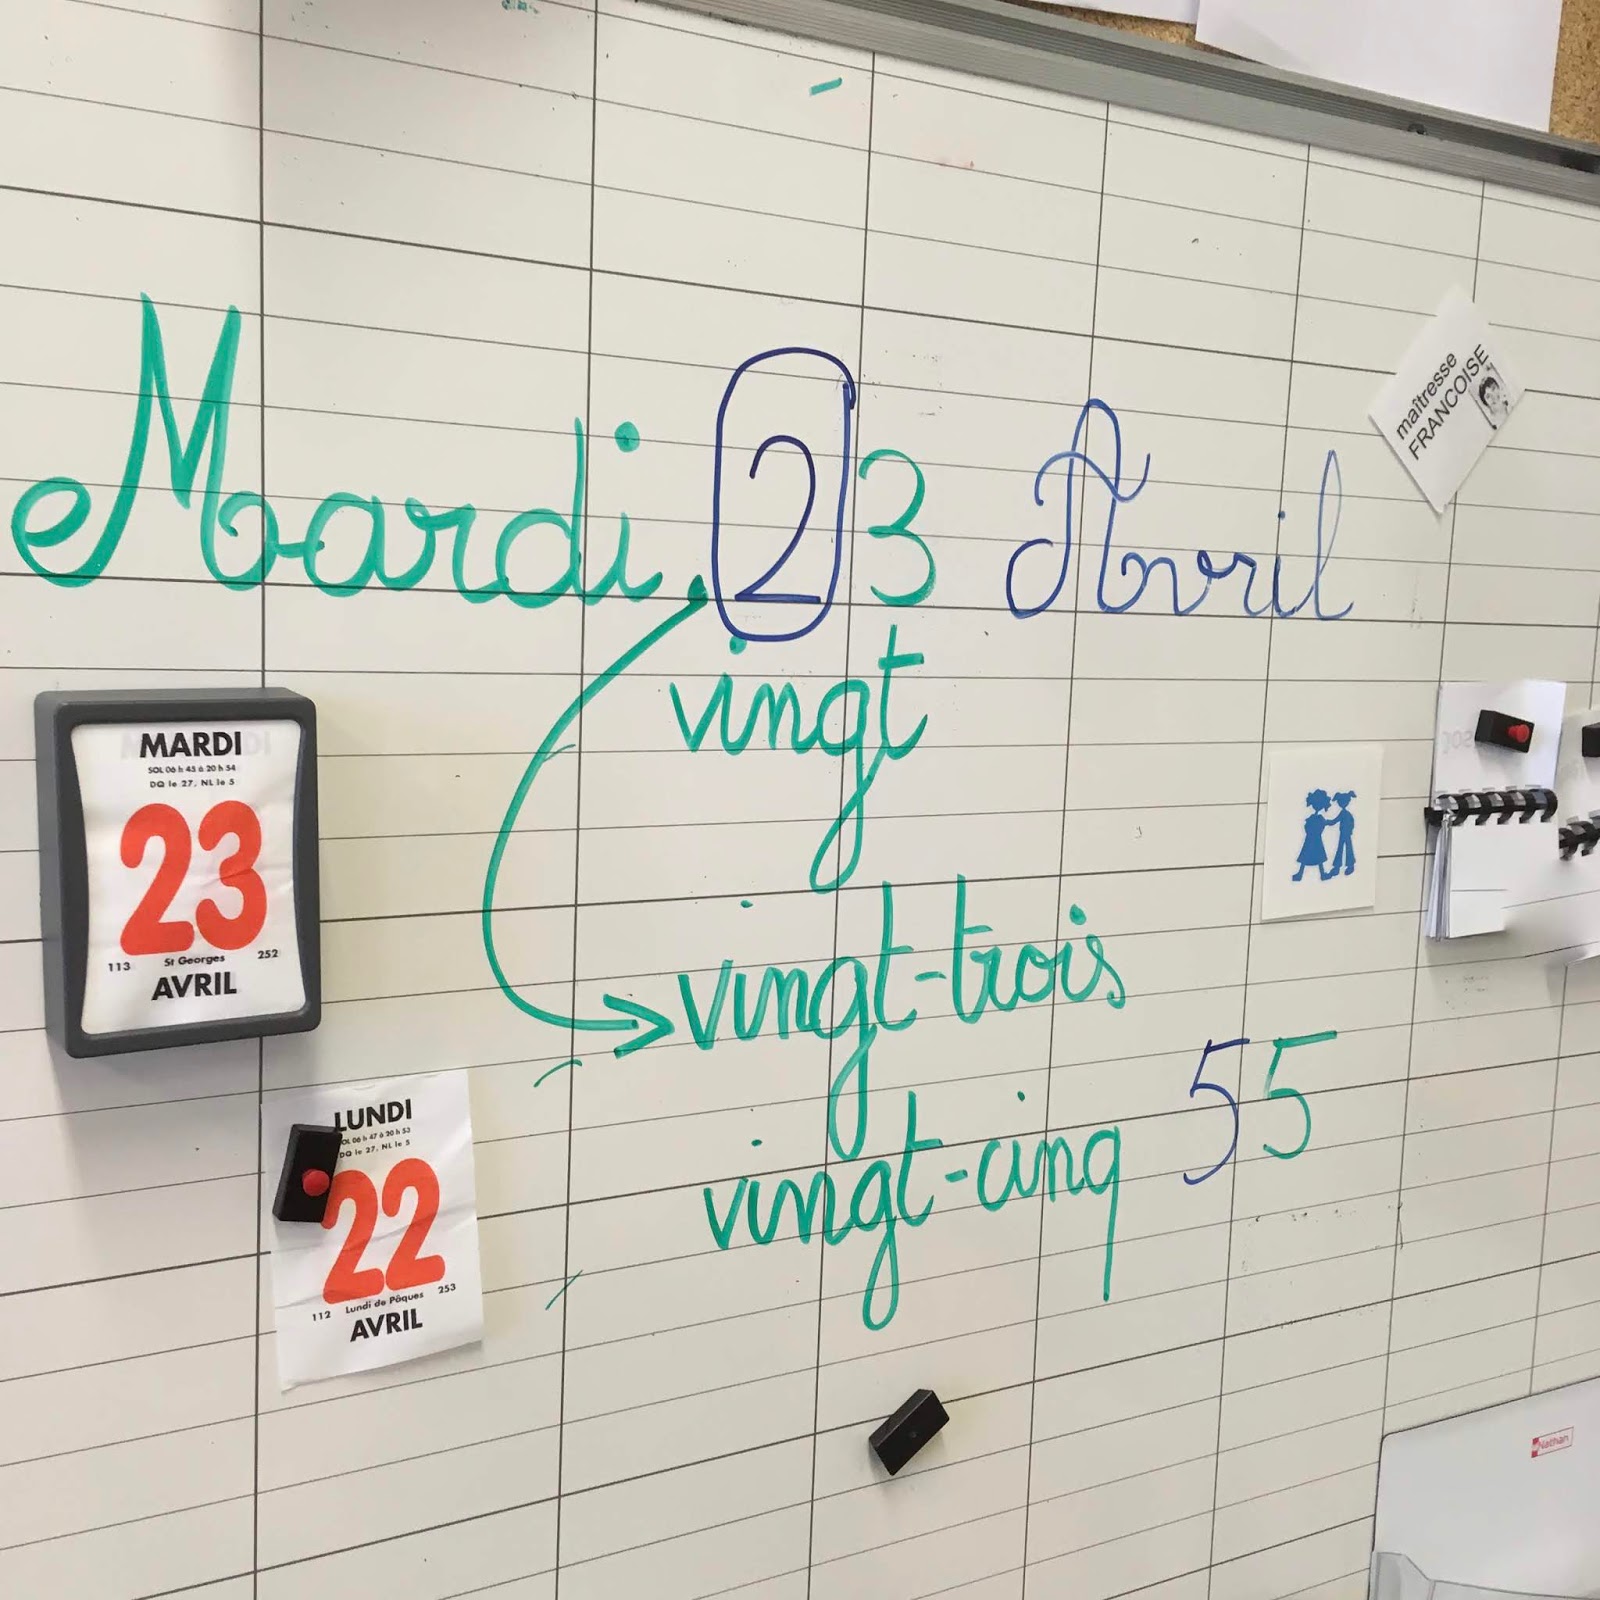 maîtresse
FRANCOISE
Mardi 23 Avril
vingt
vingt-trois
vingt-cinq 55
MARDI
SOL 06 h 45 à 20 h 54
DQ le 27, NL le 5
23
113 St Georges 252
AVRIL
LUNDI
SOL 06 h 47 à 20 h 53
DQ le 27, NL le 5
22
112 Lundi de Pâques 253
AVRIL
Nathan